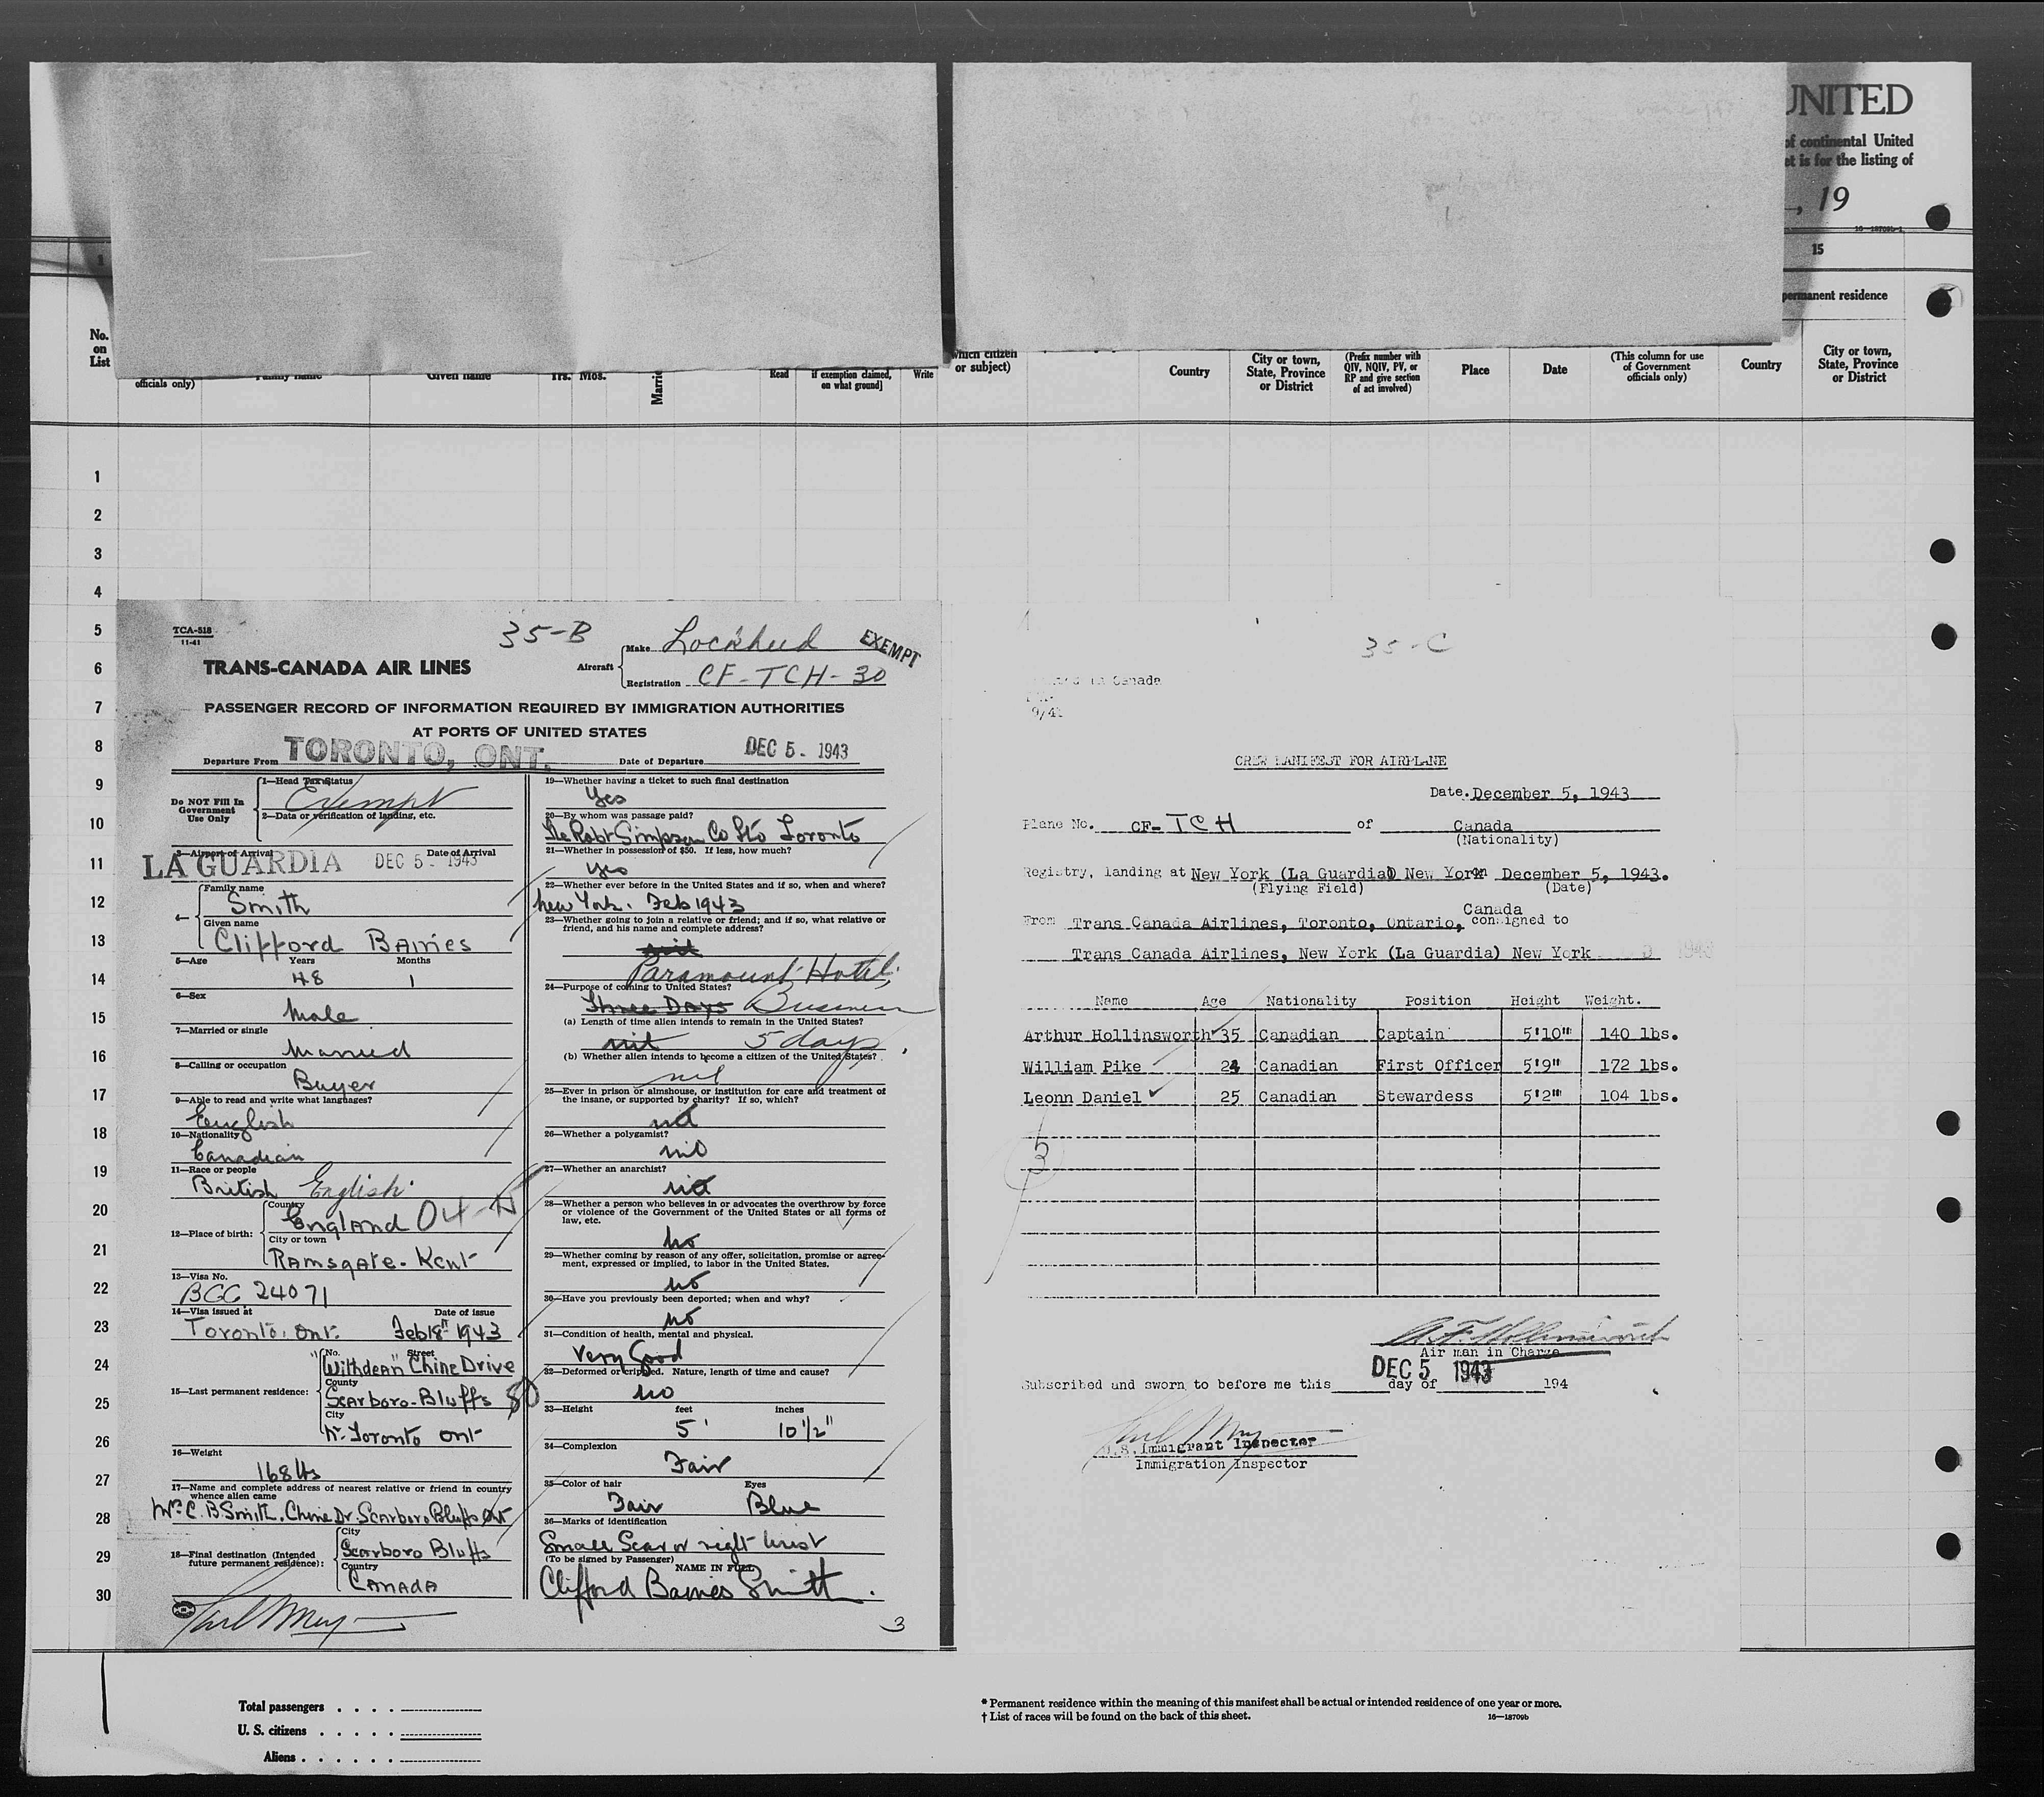 UNITED
of continental United
et is for the listing of
, 19
16—18709b-1
1
15
permanent residence
No.
on
List
officials only)
Family name
Given name
Yrs. Mos.
Read
if exemption claimed,
on what ground]
Write
which citizen
or subject)
Country
City or town,
State, Province
or District
(Prefix number with
QIV, NQIV, PV, or
RP and give section
of act involved)
Place
Date
(This column for use
of Government
officials only)
Country
City or town,
State, Province
or District
1
2
3
4
5
6
7
8
9
10
11
12
13
14
15
16
17
18
19
20
21
22
23
24
25
26
27
28
29
30
TCA-518
11-41
35-B
Make Lockheed
EXEMPT
TRANS-CANADA AIR LINES
Aircraft
Registration CF-TCH-30
PASSENGER RECORD OF INFORMATION REQUIRED BY IMMIGRATION AUTHORITIES
AT PORTS OF UNITED STATES
Departure From TORONTO, ONT. Date of Departure DEC 5 - 1943
Do NOT Fill In
Government
Use Only
1—Head Tax Status
Exempt
2—Data or verification of landing, etc.
3—Airport of Arrival Date of Arrival
LA GUARDIA DEC 5 - 1943
4—
Family name
Smith
Given name
Clifford Baines
5—Age Years Months
48 1
6—Sex
Male
7—Married or single
Married
8—Calling or occupation
Buyer
9—Able to read and write what languages?
English
10—Nationality
Canadian
11—Race or people
British English
12—Place of birth:
Country
England 04-N
City or town
Ramsgate. Kent
13—Visa No.
BCC 24071
14—Visa issued at Date of issue
Toronto. Ont. Feb 18th 1943
15—Last permanent residence:
No. Street
"Withdean" Chine Drive
County
Scarboro-Bluffs 80
City
Nr. Toronto Ont
16—Weight
168 lbs
17—Name and complete address of nearest relative or friend in country
whence alien came
Mrs C.B. Smith. Chine Dr. Scarboro Bluffs Ont
18—Final destination (Intended
future permanent residence):
City
Scarboro Bluffs
Country
CANADA
Karl Mey
19—Whether having a ticket to such final destination
Yes
20—By whom was passage paid?
The Robt Simpson Co Ltd Toronto
21—Whether in possession of $50. If less, how much?
Yes
22—Whether ever before in the United States and if so, when and where?
New York. Feb 1943
23—Whether going to join a relative or friend; and if so, what relative or
friend, and his name and complete address?
nil
Paramount Hotel,
24—Purpose of coming to United States?
Three Days Business
(a) Length of time alien intends to remain in the United States?
nil 5 days
(b) Whether alien intends to become a citizen of the United States?
nil
25—Ever in prison or almshouse, or institution for care and treatment of
the insane, or supported by charity? If so, which?
nil
26—Whether a polygamist?
nil
27—Whether an anarchist?
nil
28—Whether a person who believes in or advocates the overthrow by force
or violence of the Government of the United States or all forms of
law, etc.
No
29—Whether coming by reason of any offer, solicitation, promise or agree-
ment, expressed or implied, to labor in the United States.
No
30—Have you previously been deported; when and why?
No
31—Condition of health, mental and physical.
Very Good
32—Deformed or crippled. Nature, length of time and cause?
No
33—Height feet inches
5' 10½"
34—Complexion
Fair
35—Color of hair Eyes
Fair Blue
36—Marks of identification
Small Scar on right wrist
(To be signed by Passenger)
NAME IN FULL
Clifford Baines Smith.
3
35-C
in Canada
9/41
CREW MANIFEST FOR AIRPLANE
Date. December 5, 1943
Plane No. CF-TCH of Canada
(Nationality)
Registry, landing at New York (La Guardia) New York on December 5, 1943.
(Flying Field) (Date)
Canada
From Trans Canada Airlines, Toronto, Ontario, consigned to
Trans Canada Airlines, New York (La Guardia) New York
Name Age Nationality Position Height Weight.
Arthur Hollinsworth 35 Canadian Captain 5'10" 140 lbs.
William Pike 24 Canadian First Officer 5'9" 172 lbs.
Leonn Daniel 25 Canadian Stewardess 5'2" 104 lbs.
3
A.F. Hollinsworth
Air man in Charge
DEC 5 1943
Subscribed and sworn to before me this day of 194
Karl Mey
U.S. Immigrant Inspector
Immigration Inspector
Total passengers . . . .
U. S. citizens . . . . .
Aliens . . . . . .
* Permanent residence within the meaning of this manifest shall be actual or intended residence of one year or more.
† List of races will be found on the back of this sheet.
16—18709b